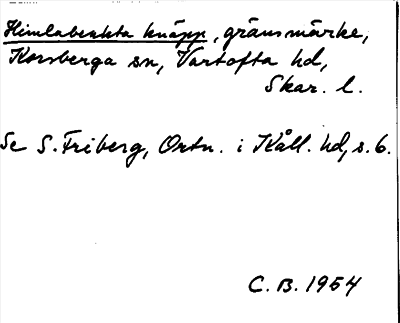 Himlabackta knäpp, gränsmärke,
Korsberga sn, Vartofta hd,
Skar. l.
Se S. Friberg, Ortn. i Kåll. hd, s. 6.
C. B. 1954